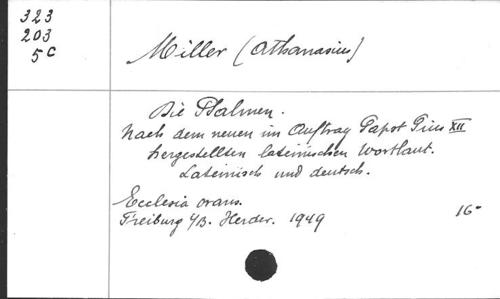 323
203
5c
Miller (Athanasius)
Die Psalmen.
Nach dem neuen im Auftrag Papst Pius XII
hergestellten lateinischen Wortlaut.
Lateinisch und deutsch.
Ecclesia orans.
Freiburg i/B. Herder. 1949
16-